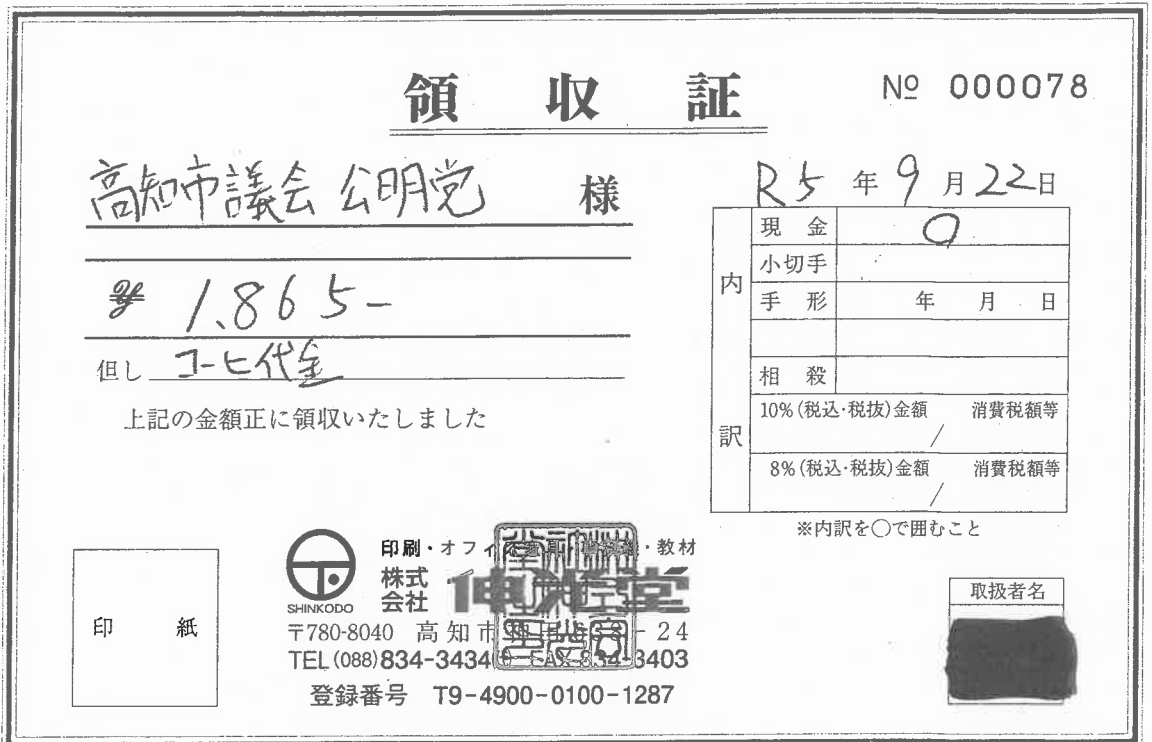 領収証
№ 000078
高知市議会 公明党 様
R5年9月22日
¥ 1.865-
但し コーヒ代金
上記の金額正に領収いたしました
内訳
現金 〇
小切手
手形 年 月 日
相殺
10%(税込・税抜)金額 消費税額等
/
8%(税込・税抜)金額 消費税額等
/
※内訳を〇で囲むこと
印紙
SHINKODO
印刷・オフィ ・教材
株式会社 伸光堂
〒780-8040 高知市 -24
TEL(088)834-3434 FAX 834-3403
登録番号 T9-4900-0100-1287
取扱者名